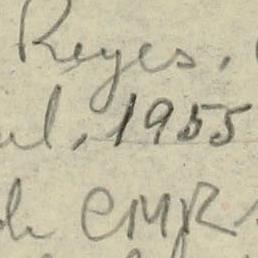 Reyes.
ul, 1955
CMR